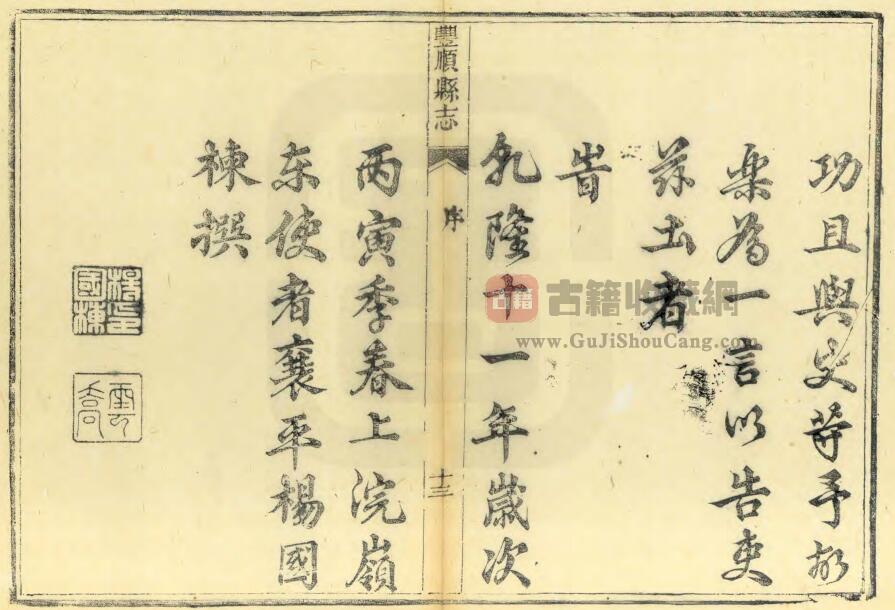 功且與史等予故
樂為一言以告吏
茲土者
旹
乹隆十一年歲次
丙寅季春上浣嶺
豐順縣志
序
十三
东使者襄平楊國
棟撰
楊印國棟
雲喬
古籍
古籍收藏網
www.GuJiShouCang.com